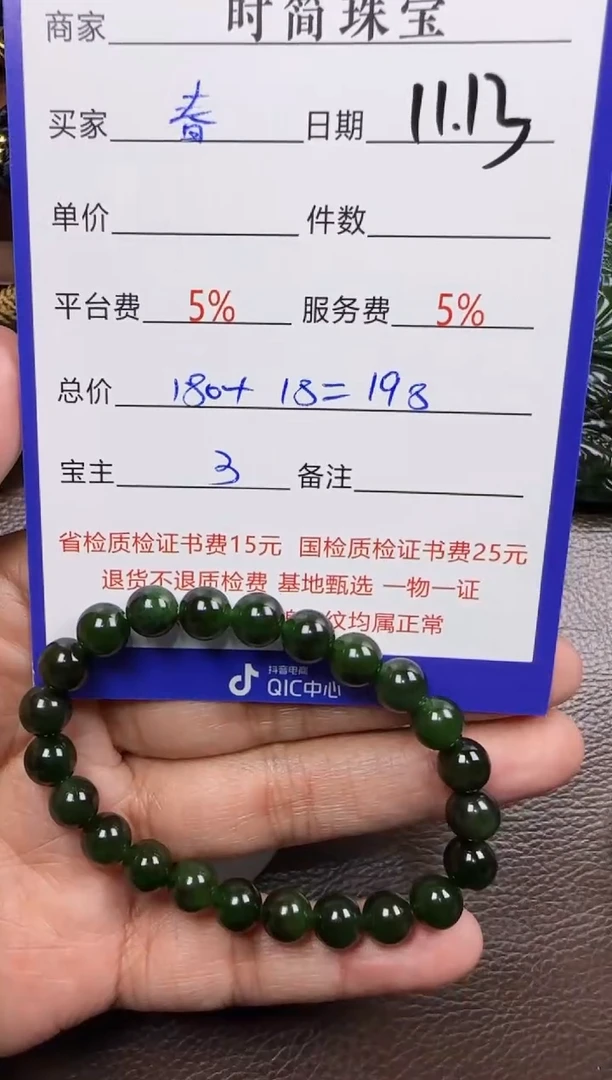 商家 时简珠宝
买家 春 日期 11.13
单价 件数
平台费 5% 服务费 5%
总价 180+ 18=198
宝主 3 备注
省检质检证书费15元 国检质检证书费25元
退货不退质检费 基地甄选 一物一证
纹均属正常
抖音电商
QIC中心